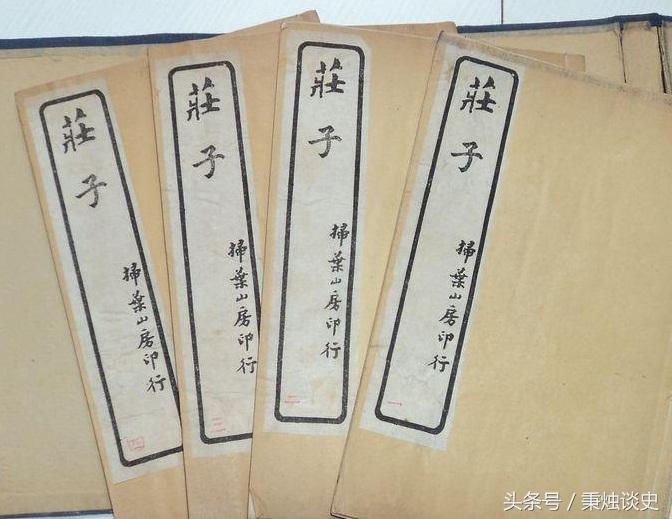 莊子
掃葉山房印行
四
莊子
掃葉山房印行
三
莊子
掃葉山房印行
二
莊子
掃葉山房印行
一
头条号／秉烛谈史